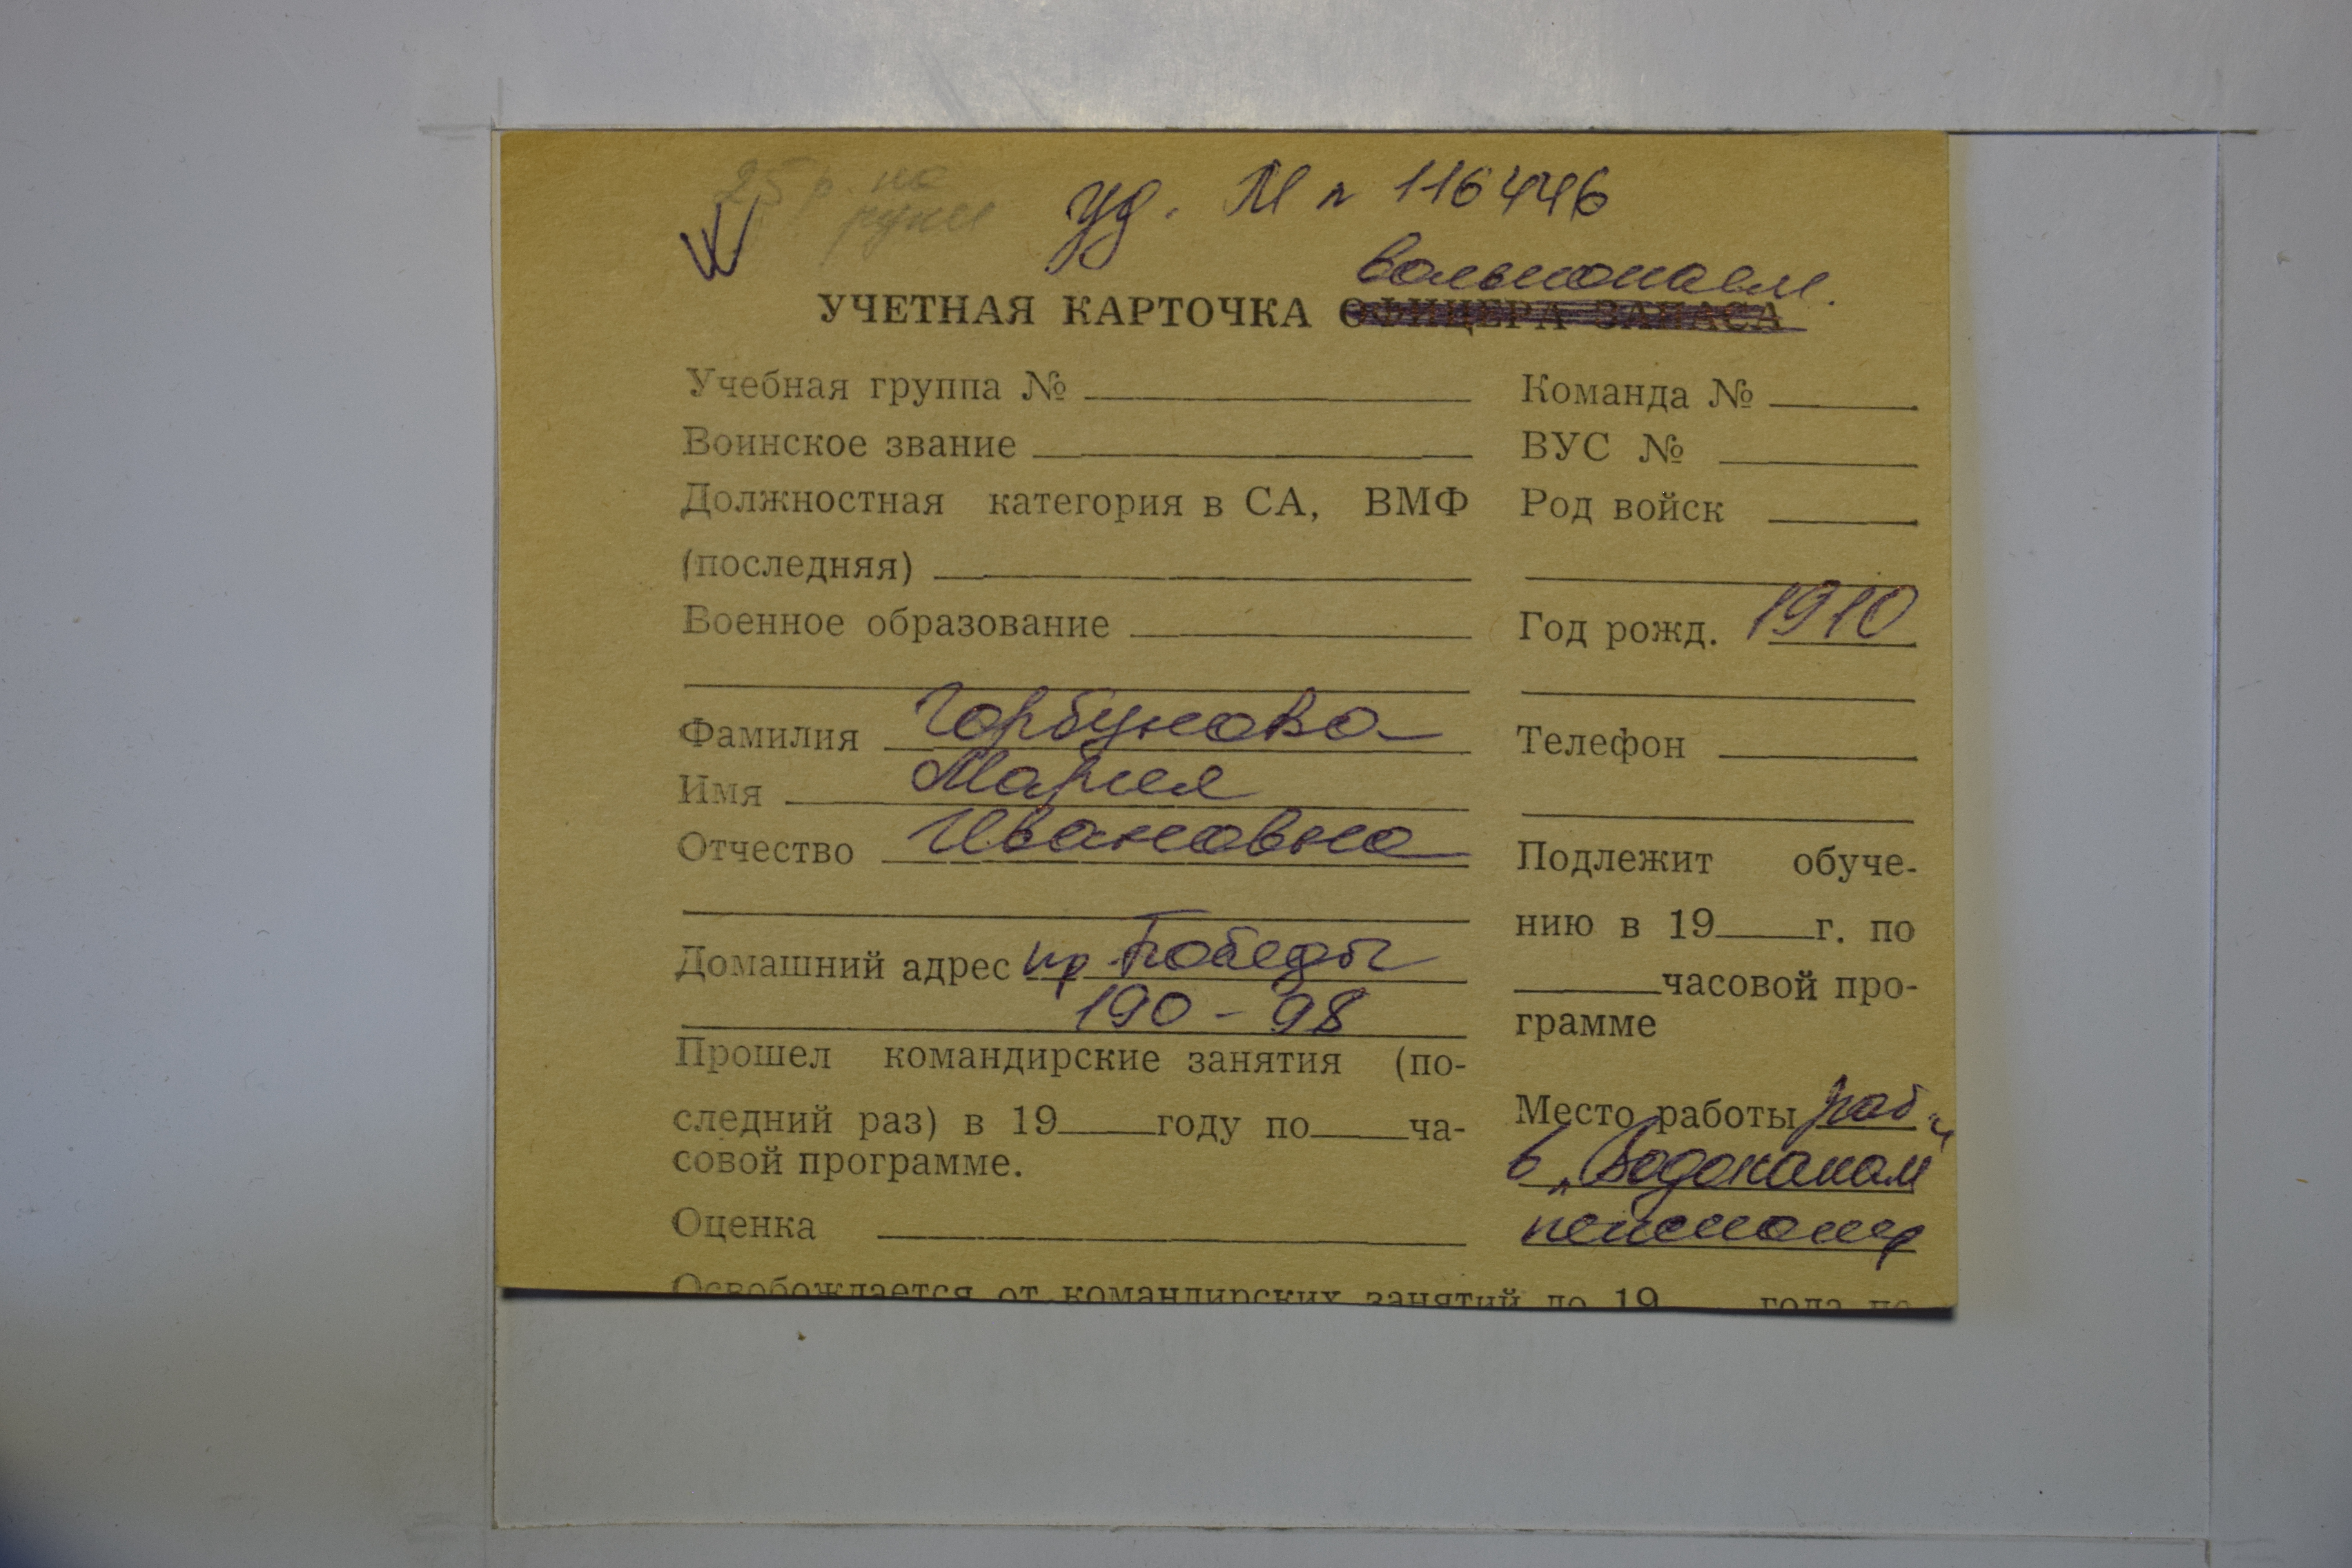 25 р. на
руки
уд. М п 116446
вольнонаем.
УЧЕТНАЯ КАРТОЧКА ОФИЦЕРА ЗАПАСА
Учебная группа № Команда №
Воинское звание ВУС №
Должностная категория в СА, ВМФ Род войск
(последняя)
Военное образование Год рожд. 1910
Фамилия Горбунова Телефон
Имя Мария
Отчество Ивановна
Подлежит обуче-
нию в 19 г. по
часовой про-
грамме
Домашний адрес пр Победы
190 - 98
Прошел командирские занятия (по-
следний раз) в 19 году по ча-
совой программе.
Место работы раб.
в „Водоканал"
Оценка
Освобождается от командирских занятий до 19 года по